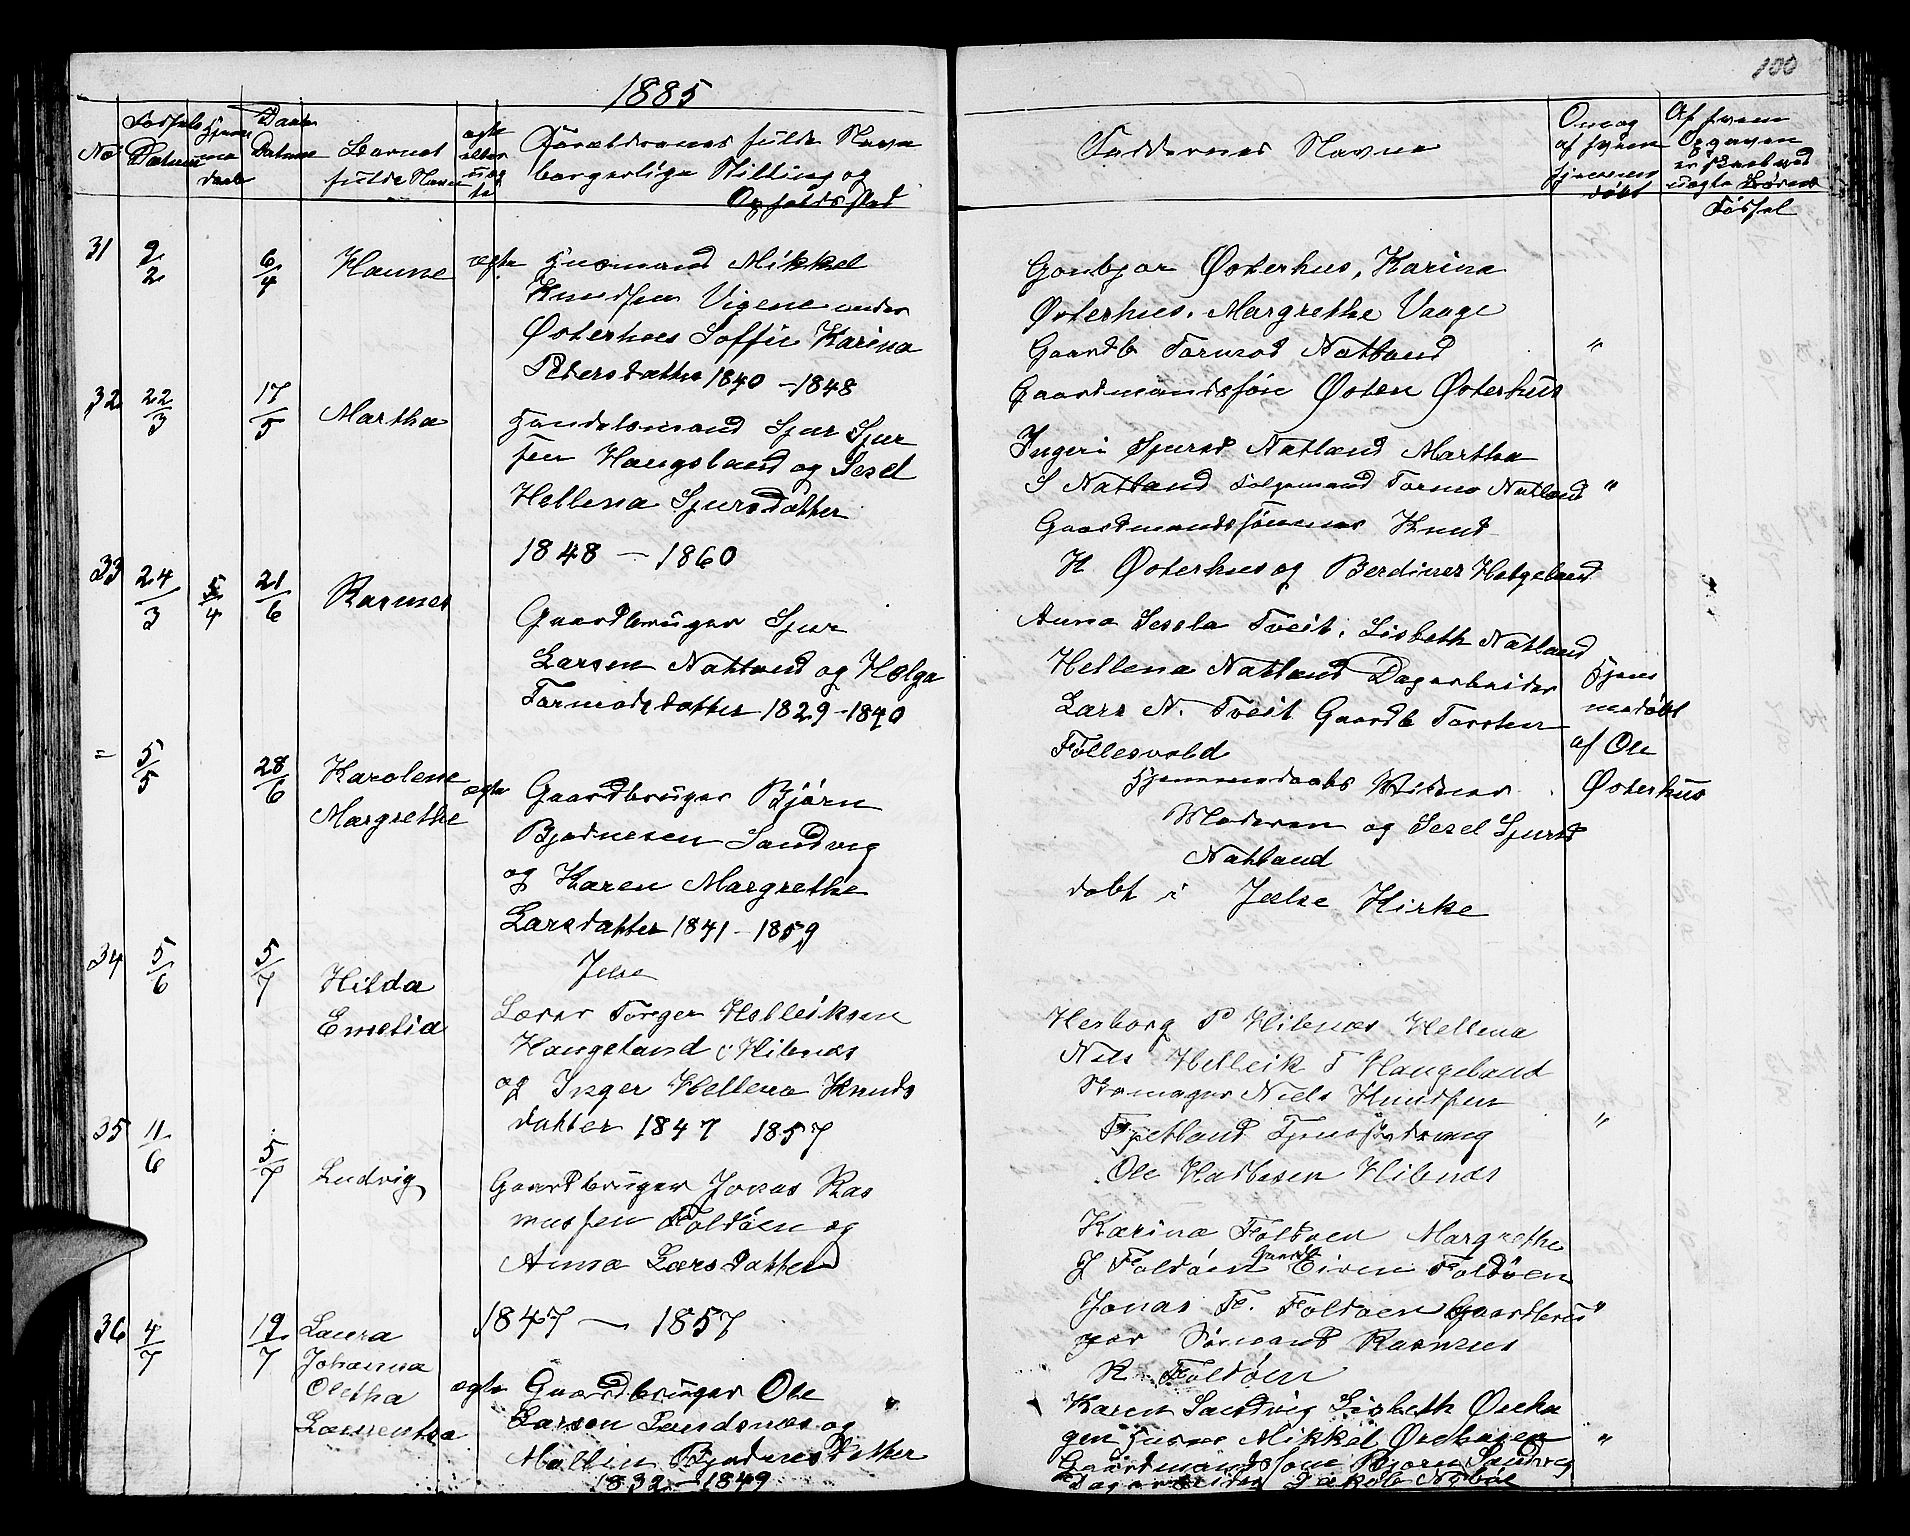 1885
100
No
Datum
Daabs
Datum
Barnets
fulde Navn
ægte
eller
uæg
te
Forældrenes fulde Navn
borgerlige Stilling og
Opholdssted
Faddernes Navne
Om og
af hvem
hjemme
døbt
Af hvem
Opgaven
er
uægte Børns
Fødsel
31 9/2 6/4 Hanne ægte Huusmand Mikkel
Knudsen Vigene under
Østerhus Soffie Karina
Pedersdatter 1840 - 1848
Gonbjor Østerhus, Karina
Østerhus. Margrethe Vaage
Gaardb Tormod Natland "
Gaardmandssøn Østen Østerhus
32 22/3 17/5 Martha Handelsmand Sjur Sjur
sen Haugsland og Sesel
Hellena Sjursdatter
1848 - 1860
Ingeri Sjursd Natland Martha
S Natland Tormo Natland "
Gaardmandssønner Knud
H Østerhus og Berdines Helgeland
33 24/3 5/4 21/6 Rasmus
Gaardbruger Sjur
Larsen Natland og Helga
Tormodsdatter 1829 - 1840
Anna Sesela Tveit, Lisbeth Natland
Hellena Natland Dagarbeider
Lars N. Tveit Gaardb Torsten
Føllesvold
Hjemmedaabs Vidner
Moderen og Sesel Sjursd
Natland
Hjem
medøbt
af Ole
Østerhus
= 5/5 28/6 Karolene
Margrethe
ægte Gaardbruger Bjørn
Bjødnesen Sandvig
og Karen Margrethe
Larsdatter 1841 - 1859
Jelse
døbt i Jelse Kirke
34 5/6 5/7 Hilda
Emelia
Lærer Torger Helleiksen
Haugeland i Hibnæs
og Inger Hellena Knuds
datter 1847 1857
Herborg P Hibnæs Hellena
Nils Helleik T Haugeland
Skomager Niels Knudsen
Fjetland Tjenestedreng "
Ole Hibnæs
35 11/6 5/7 Ludvig
Gaardbruger Jonas Ras
mussen Foldøen og
Anna Larsdatter
1847 - 1857
Karina Foldøen Margrethe
J Foldøen Gaardb Foldøen
Jonas F. Foldøen Gaardbru "
ger Sømand Rasmus
R Foldøen
36 4/7 19/7 Laura
Johanna
Oletha
Laurentea
ægte Gaardbruger Ole
Larsen Sandsnæs og
Mallin Bjødnesdatter
1832 - 1849
Karen Sandvig Lisbeth Øreha
gen Husm Mikkel Ørehagen "
Gaardmandssøn Bjørn Sandvig
Dagarbeider Jakob